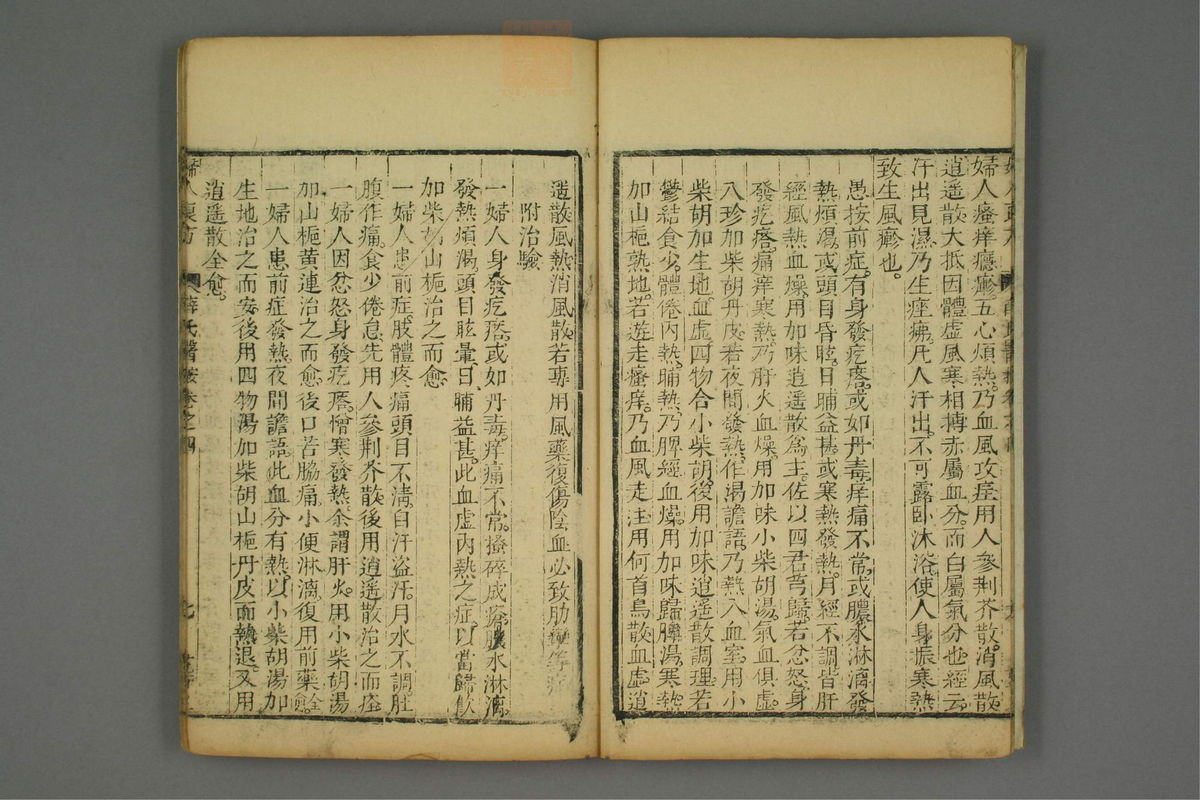 婦人瘙痒癮疹。五心煩熱。乃血風攻症。用人參荆芥散。消風散
逍遥散。大抵因體虛風寒相搏。赤屬血分。而白屬氣分也。經云
汗出見濕。乃生痤疿。凡人汗出。不可露卧沐浴。使人身振寒熱
致生風疹也。
愚按前症。有身發疙瘩。或如丹毒。痒痛不常。或膿水淋漓。發
熱煩渴。或頭目昏眩。日晡益甚。或寒熱發熱。月經不調。皆肝
經風熱血燥。用加味逍遥散爲主。佐以四君芎歸。若忿怒。身
發疙瘩。痛痒寒熱。乃肝火血燥。用加味小柴胡湯。氣血俱虛。
八珍加柴胡丹皮。若夜間發熱。作渴譫語。乃熱入血室。用小
柴胡加生地。血虛。四物合小柴胡。後用加味逍遥散調理。若
鬱結食少。體倦內熱。晡熱。乃脾經血燥。用加味歸脾湯。寒熱。
加山梔熟地。若遊走瘙痒。乃血風走注。用何首烏散。血虛。逍
遥散。風熱。消風散。若專用風藥。復傷陰血。必致肋攣等症
附治驗
一婦人身發疙瘩。或如丹毒。痒痛不常。搔碎成瘡。膿水淋漓。
發熱煩渴。頭目眩暈。日晡益甚。此血虛內熱之症。以當歸飲
加柴胡山梔治之而愈。
一婦人患前症。肢體疼痛。頭目不淸。自汗盜汗。月水不調。肚
腹作痛。食少倦怠。先用人參荆芥散。後用逍遥散治之而痊
一婦人因忿怒。身發疙瘩。憎寒發熱。余謂肝火。用小柴胡湯
加山梔黃連。治之而愈。後口苦脇痛。小便淋漓。復用前藥全愈。
一婦人患前症。發熱。夜間譫語。此血分有熱。以小柴胡湯加
生地治之而安。後用四物湯加柴胡山梔丹皮而熱退。又用
逍遥散全愈。
婦人良方 薛氏醫按卷之四 七